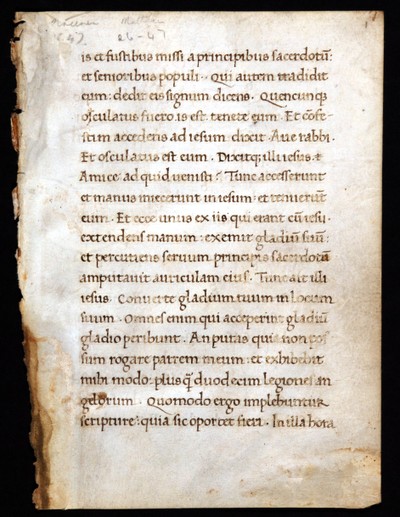 Matthew
26-47
is et fustibus missi a principibus sacerdotū:
et senioribus populi. Qui autem tradidit
eum: dedit eis signum dicens. Quencunq;
osculatus fuero is est tenete eum. Et confe-
stim accedens ad iesum: dixit. Aue rabbi.
Et osculatus est eum. Dixitq; illi iesus.
Amice ad quid uenisti? Tunc accesserunt
et manus iniecerunt in iesum: et tenuerūt
eum. Et ecce unus ex iis qui erant cū iesu
extendens manum: exemit gladiū suū:
et percutiens seruum principis sacerdotū
amputauit auriculam eius. Tunc ait illi
iesus. Conuerte gladium tuum in locum
suum. Omnes enim qui acceperint gladiū
gladio peribunt. An putas quia non pos
sum rogare patrem meum: et exhibebit
mihi modo: plus q̄ duodecim legiones an
gelorum. Quomodo ergo implebuntur
scripture: quia sic oportet fieri. In illa hora